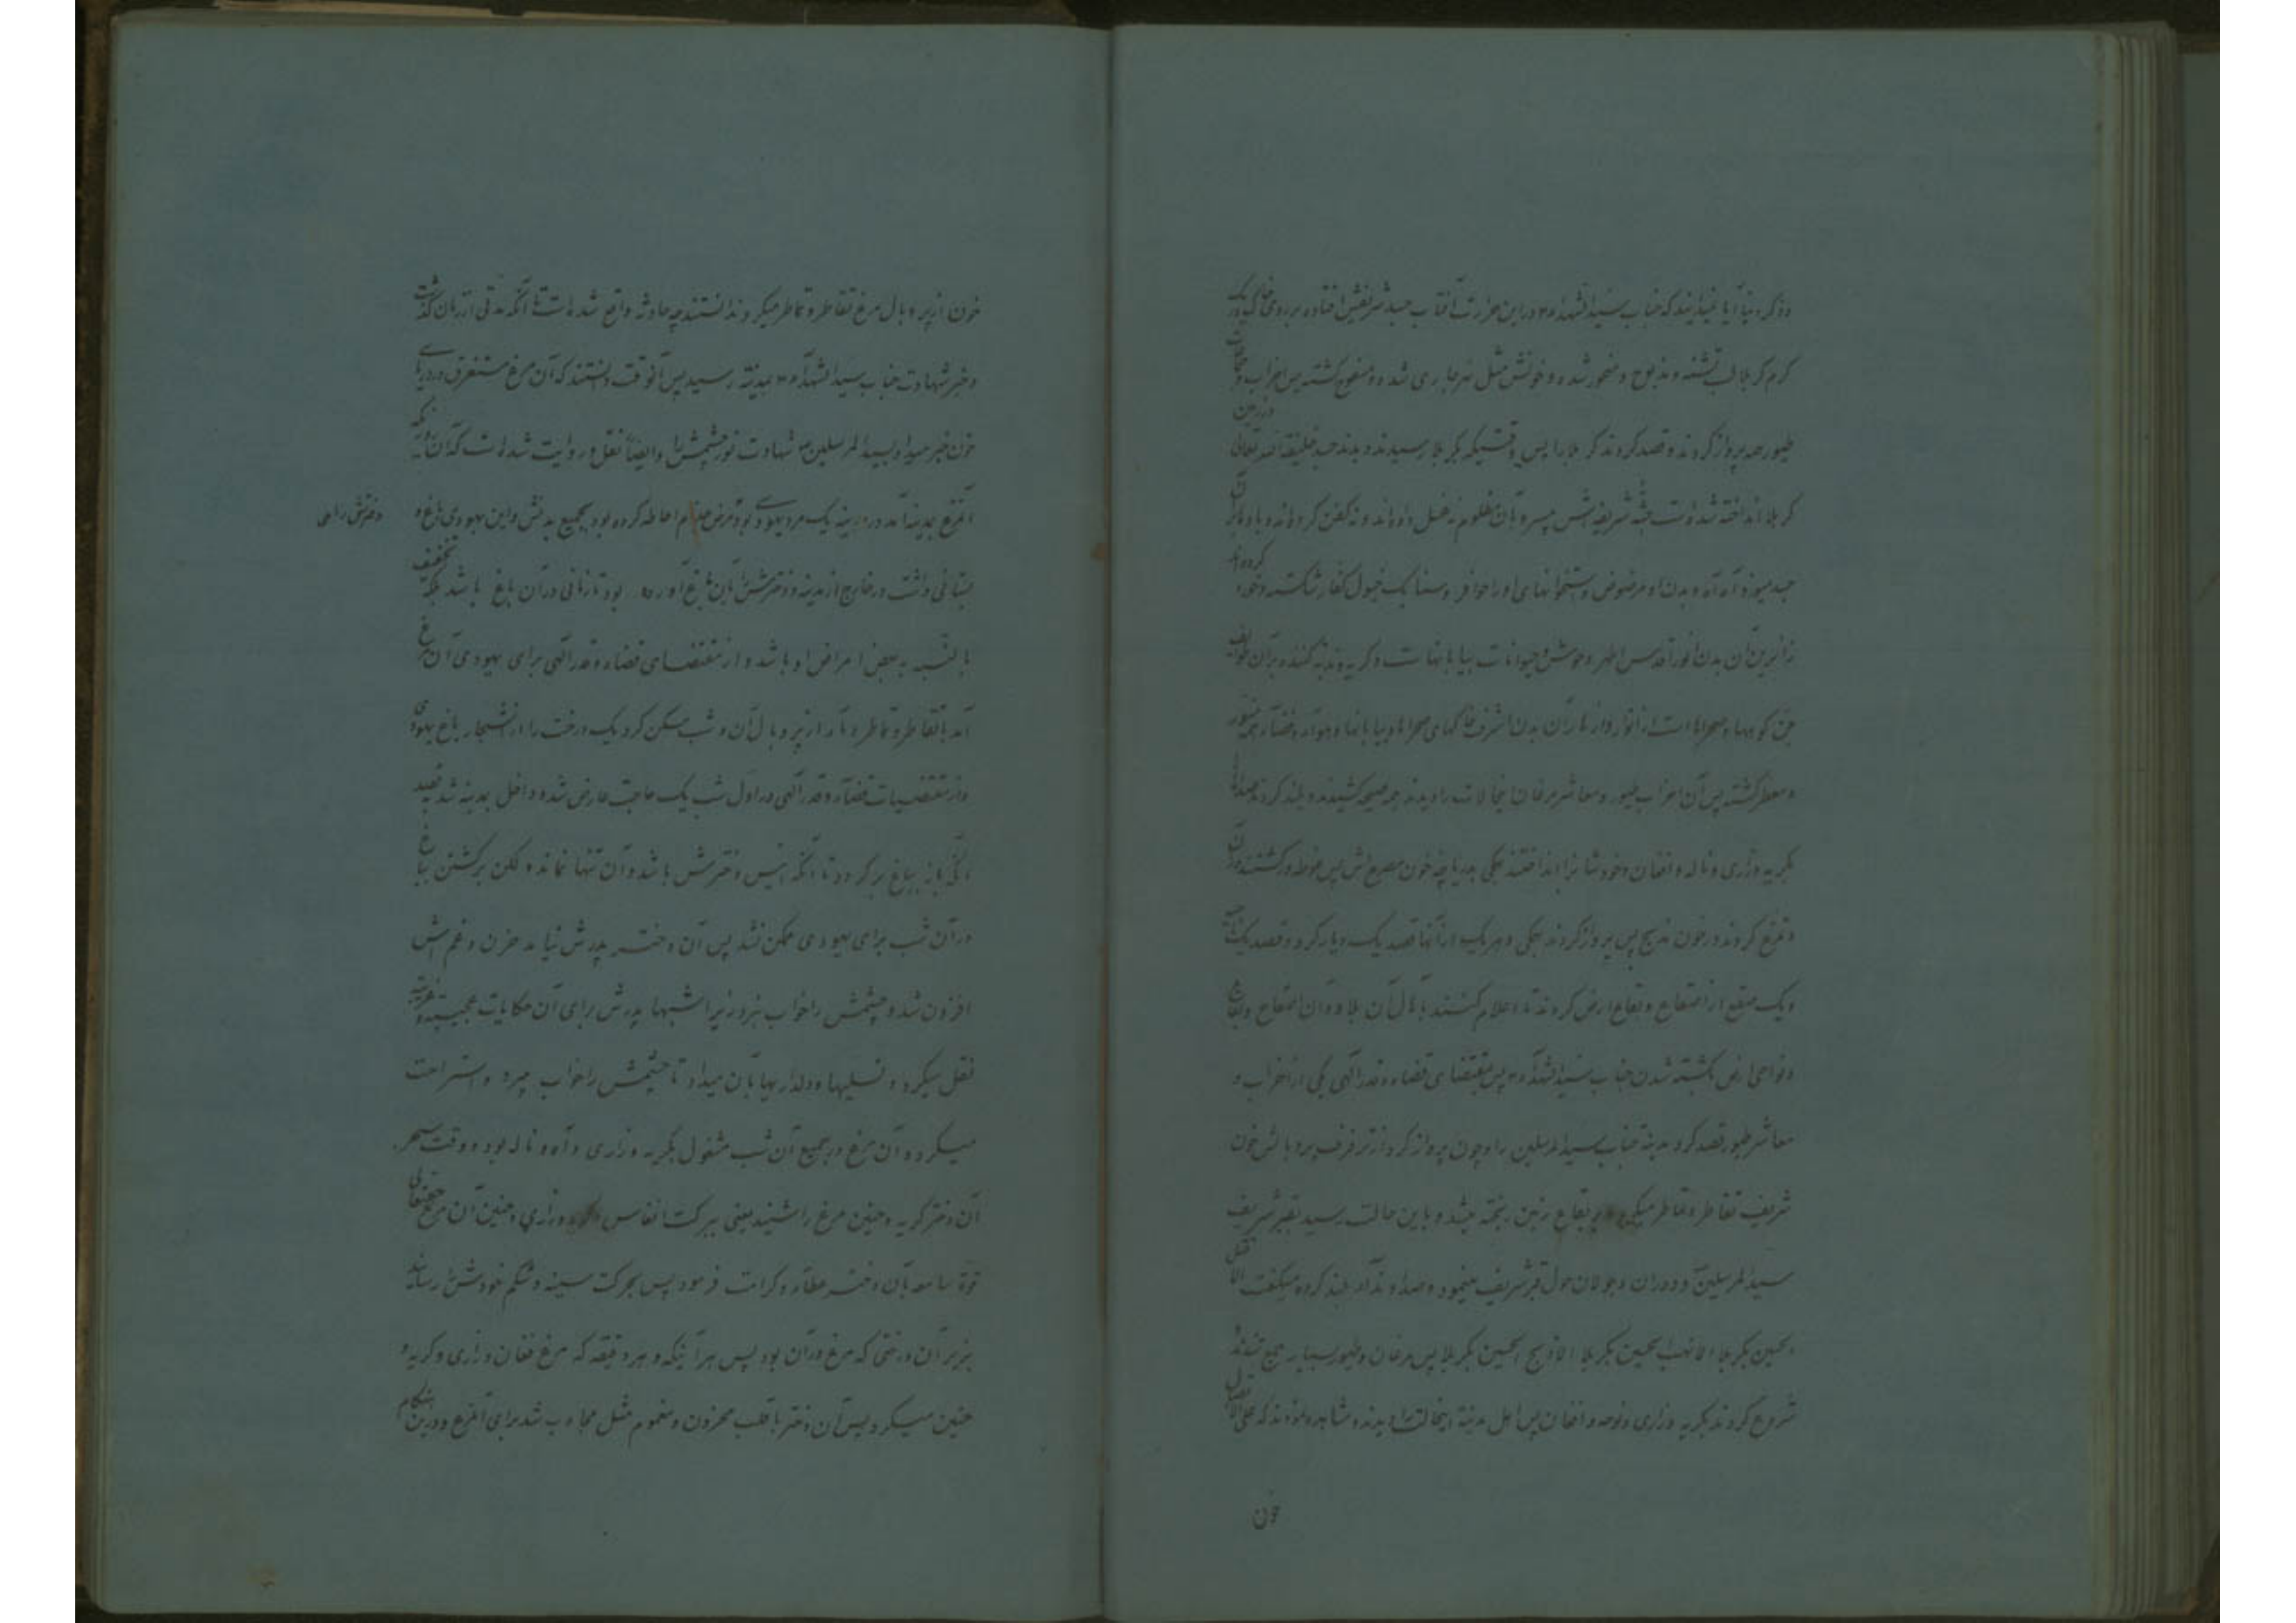 و ذکر دنیا آیا نمیدانید که جناب سید الشهداء در این حرارت آفتاب جسد شریفش افتاده بر روی خاک در
کرم کربلا لب تشنه و مذبوح و منحور شده و خونش مثل نهر جاری شده و مسفوح گشته پس احزاب و جماعات
طیور همه پرواز کردند و قصد کردند کربلا را پس وقتیکه بکربلا رسیدند دیدند جسد خلیفة الله تعالی در زمین
کربلا انداخته شده است جثه شریفه اش بی سر و آن مظلوم نه غسل داده اند و نه کفن کرده اند و بادها بر آن
جسد میوزد آه آه و بدن او مرضوض و استخوانهای او را حوافر و سنابک خیول کفار شکسته و خورد کرده اند
زائرین آن بدن انور اقدس اطهر وحوش و حیوانات بیابانها است و گریه و ندبه کننده بر آن طوائف
جن کوهها و صحراها است از انوار و ازهار آن بدن اشرف خاکهای صحراها و بیابانها و هوآء و فضآء همه منور
و معطر گشته پس آن احزاب طیور و معاشر مرغان اینحالات را دیدند همه صیحه کشیدند و بلند کردند صداها را
بگریه و زاری و ناله و افغان و خودشان را انداختند همگی بدریاچه خون مصرع اش پس غوطه ور گشتند در آن
و تمرغ کردند در خون مذبح پس پرواز کردند همگی و هر یک از آنها قصد یک دیار کرد و قصد یک ناحیه
و یک صقع از اصقاع و بقاع ارض کردند تا اعلام کنند باهالی آن بلاد و آن اصقاع و بقاع
و نواحی ارض کشته شدن جناب سید الشهدآء پس بمقتضای قضاء و قدر آلهی یکی از احزاب و
معاشر طیور قصد کرد مدینه جناب سید المرسلین را و چون پرواز کرد از ترفرف پر و بالش خون
شریف تقاطر و تماطر میکرد بر بقاع زمین ریخته میشد و باین حالت رسید بقبر شریف
سید المرسلین و دوران و جولان حول قبر شریف مینمود و صدا و ندآء بلند کرده میگفت الا قتل
الحسین بکربلا الا نهب الحسین بکربلا الا ذبح الحسین بکربلا پس مرغان و طیور بسیار جمع شدند و
شروع کردند بگریه و زاری و نوحه و افغان پس اهل مدینه اینحالت را دیدند و مشاهده نمودند که علی الاتصال
خون
خون از پر و بال مرغ تقاطر و تماطر میکرد و ندانستند چه حادثه واقع شده است تا آنکه مدتی از زمان گذشت
و خبر شهادت جناب سید الشهدآء بمدینه رسید پس آنوقت دانستند که آن مرغ مستغرق در دریای
خون خبر میداد بسید المرسلین شهادت نور چشمش را و ایضاً نقل و روایت شده است که آن روزیکه
آنمرغ بمدینه آمد در مدینه یک مرد یهودی بود مرض جذام احاطه کرده بود بجمیع بدنش و این یهودی باغ و
دخترش را هم
بستانی داشت در خارج از مدینه و دخترش را باین باغ آورده بود تا زمانی در آن باغ باشد بلکه تخفیف
بالنسبه به بعض امراض او باشد و از مقتضای قضاء و قدر آلهی برای یهودی آن مرغ
آمد با تقاطر و تماطر دمآء از پر و بال آن و شب مسکن کرد یک درخت را از اشجار باغ یهودی
و از مقتضیات قضآء و قدر آلهی در اول شب یک حاجت عارض شد و داخل مدینه شد بقصد
آنکه باز بباغ برگردد تا آنکه انیس دخترش باشد و آن تنها نماند و لکن برگشتن بباغ
در آن شب برای یهودی ممکن نشد پس آن دختر پدرش نیامد حزن و غم اش
افزون شد و چشمش را خواب نبرد زیرا شبها پدرش برای آن حکایات عجیبه و غریبه
نقل میکرد و تسلیها و دلداریها بآن میداد تا چشمش را خواب میبرد و استراحت
میکرد و آن مرغ در جمیع آن شب مشغول بگریه و زاری و آه و ناله بود و وقت سحر
آن دختر گریه و حنین مرغ را شنید یعنی ببرکت انفاس و زاری و حنین آن مرغ حقتعالی
قوة سامعه بآن دختر عطآء و کرامت فرمود پس بحرکت سینه و شکم خودش را رسانید
بزیر آن درختی که مرغ در آن بود پس هر آنیکه و هر دقیقه که مرغ فغان و زاری و گریه و
حنین میکرد پس آن دختر با قلب محزون و مغموم مثل مجاوب شد برای آنمرغ و در این هنگام